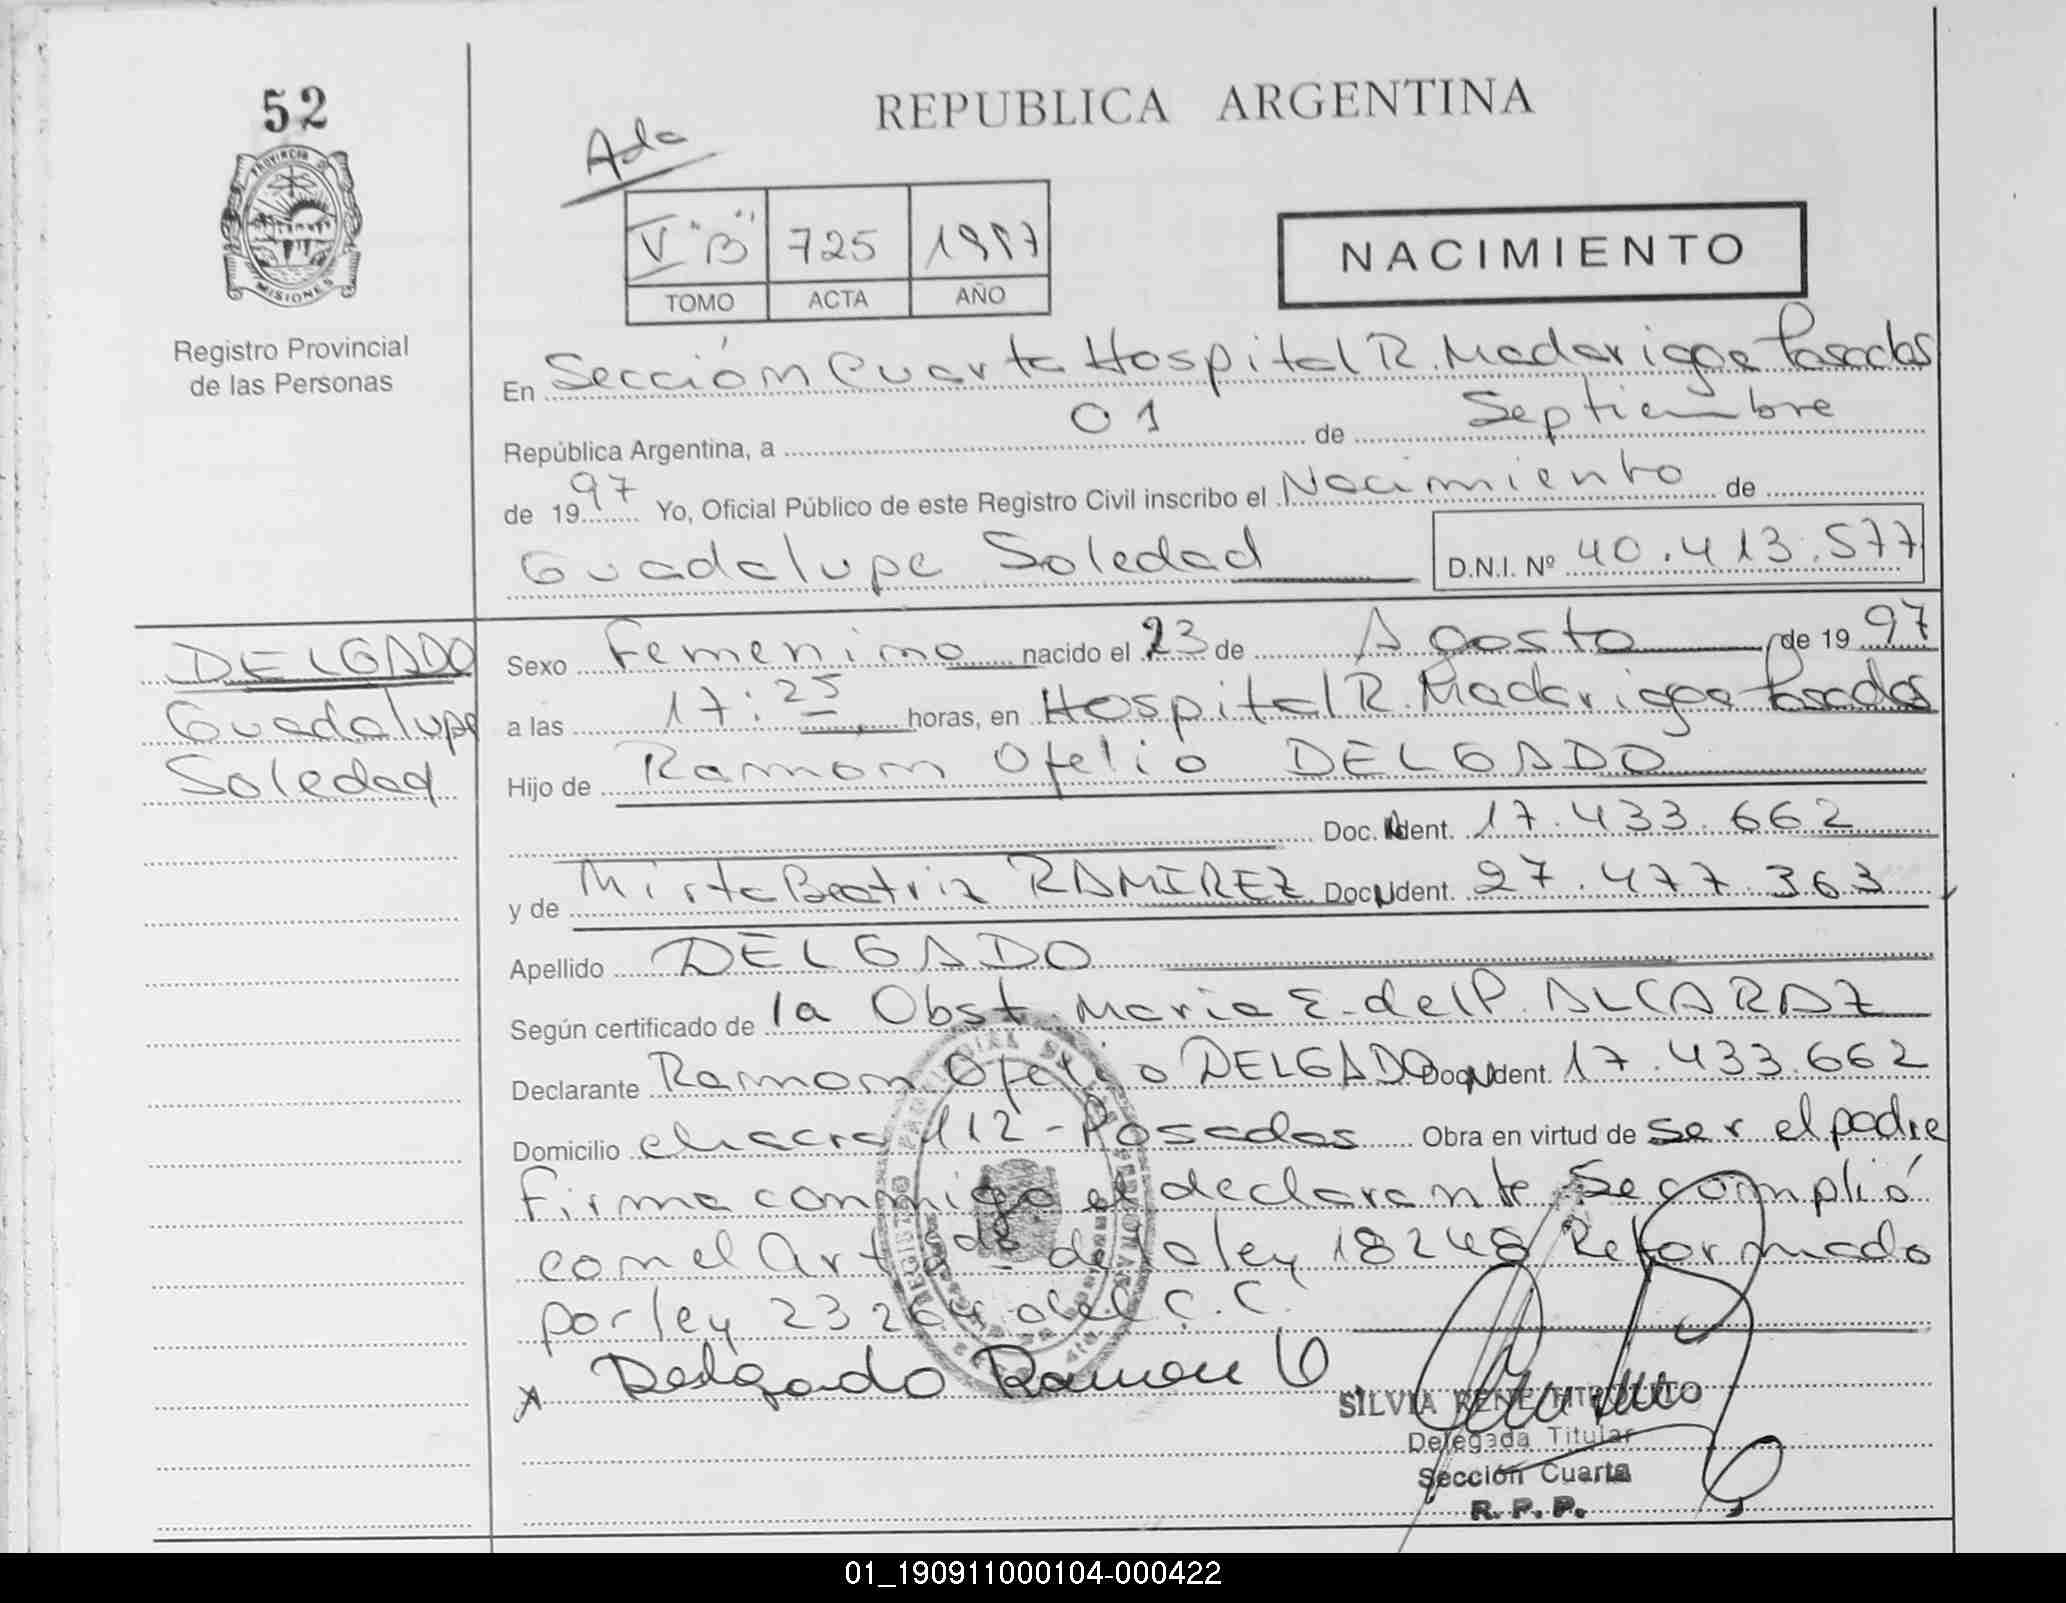 52
PROVINCIA DE
MISIONES
Registro Provincial
de las Personas
REPUBLICA ARGENTINA
Ada
V "B" 725 1997
TOMO ACTA AÑO
NACIMIENTO
En Sección Cuarta Hospital R. Madariaga Posadas
República Argentina, a 01 de Septiembre
de 1997 Yo, Oficial Público de este Registro Civil inscribo el Nacimiento de
Guadalupe Soledad D.N.I. Nº 40.413.577
DELGADO
Guadalupe
Soledad
Sexo Femenino nacido el 23 de Agosto de 1997
a las 17:25 horas, en Hospital R. Madariaga Posadas
Hijo de Ramon Ofelio DELGADO
Doc. Ident. 17.433.662
y de Mirta Beatriz RAMIREZ Doc. Ident. 27.477.363
Apellido DELGADO
Según certificado de la Obst. Maria E. del P. ALCARAZ
Declarante Ramon Ofelio DELGADO Doc. Ident. 17.433.662
Domicilio chacra 112 - Posadas Obra en virtud de ser el padre
Firma conmigo el declarante Se complió
con el Art de la ley 18248 Reformado
por ley 23264 del C.C.
Delgado Ramon O
SILVIA RENE HIPOLITO
Delegada Titular
Sección Cuarta
R. P. P.
01_190911000104-000422